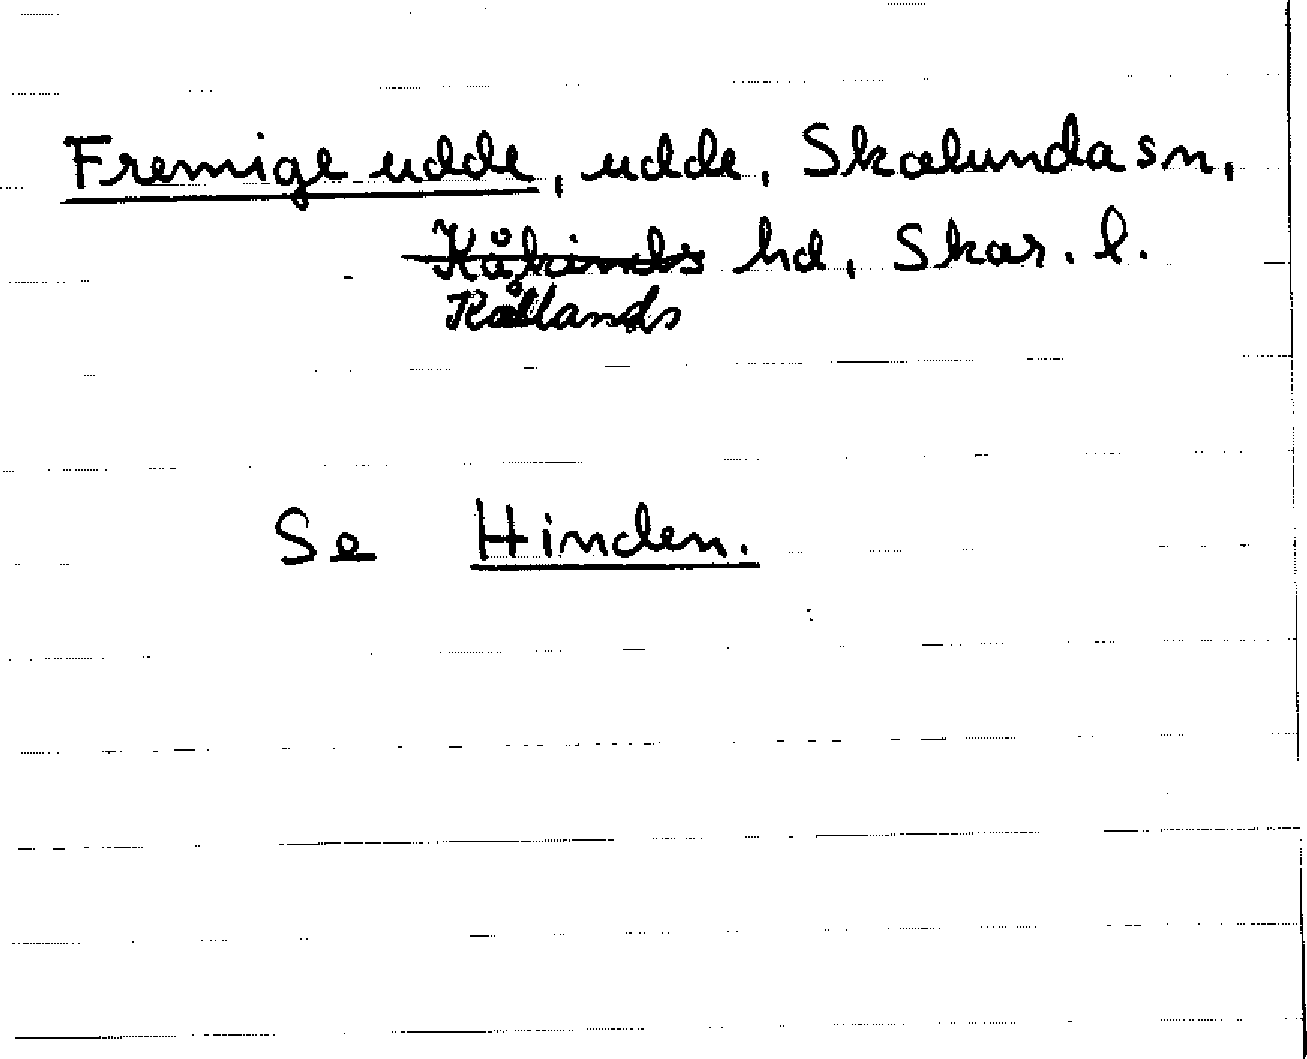 Fremige udde, udde, Skalunda sn,
Kåkinds hd, Skar. l.
Kållands
Se Hinden.